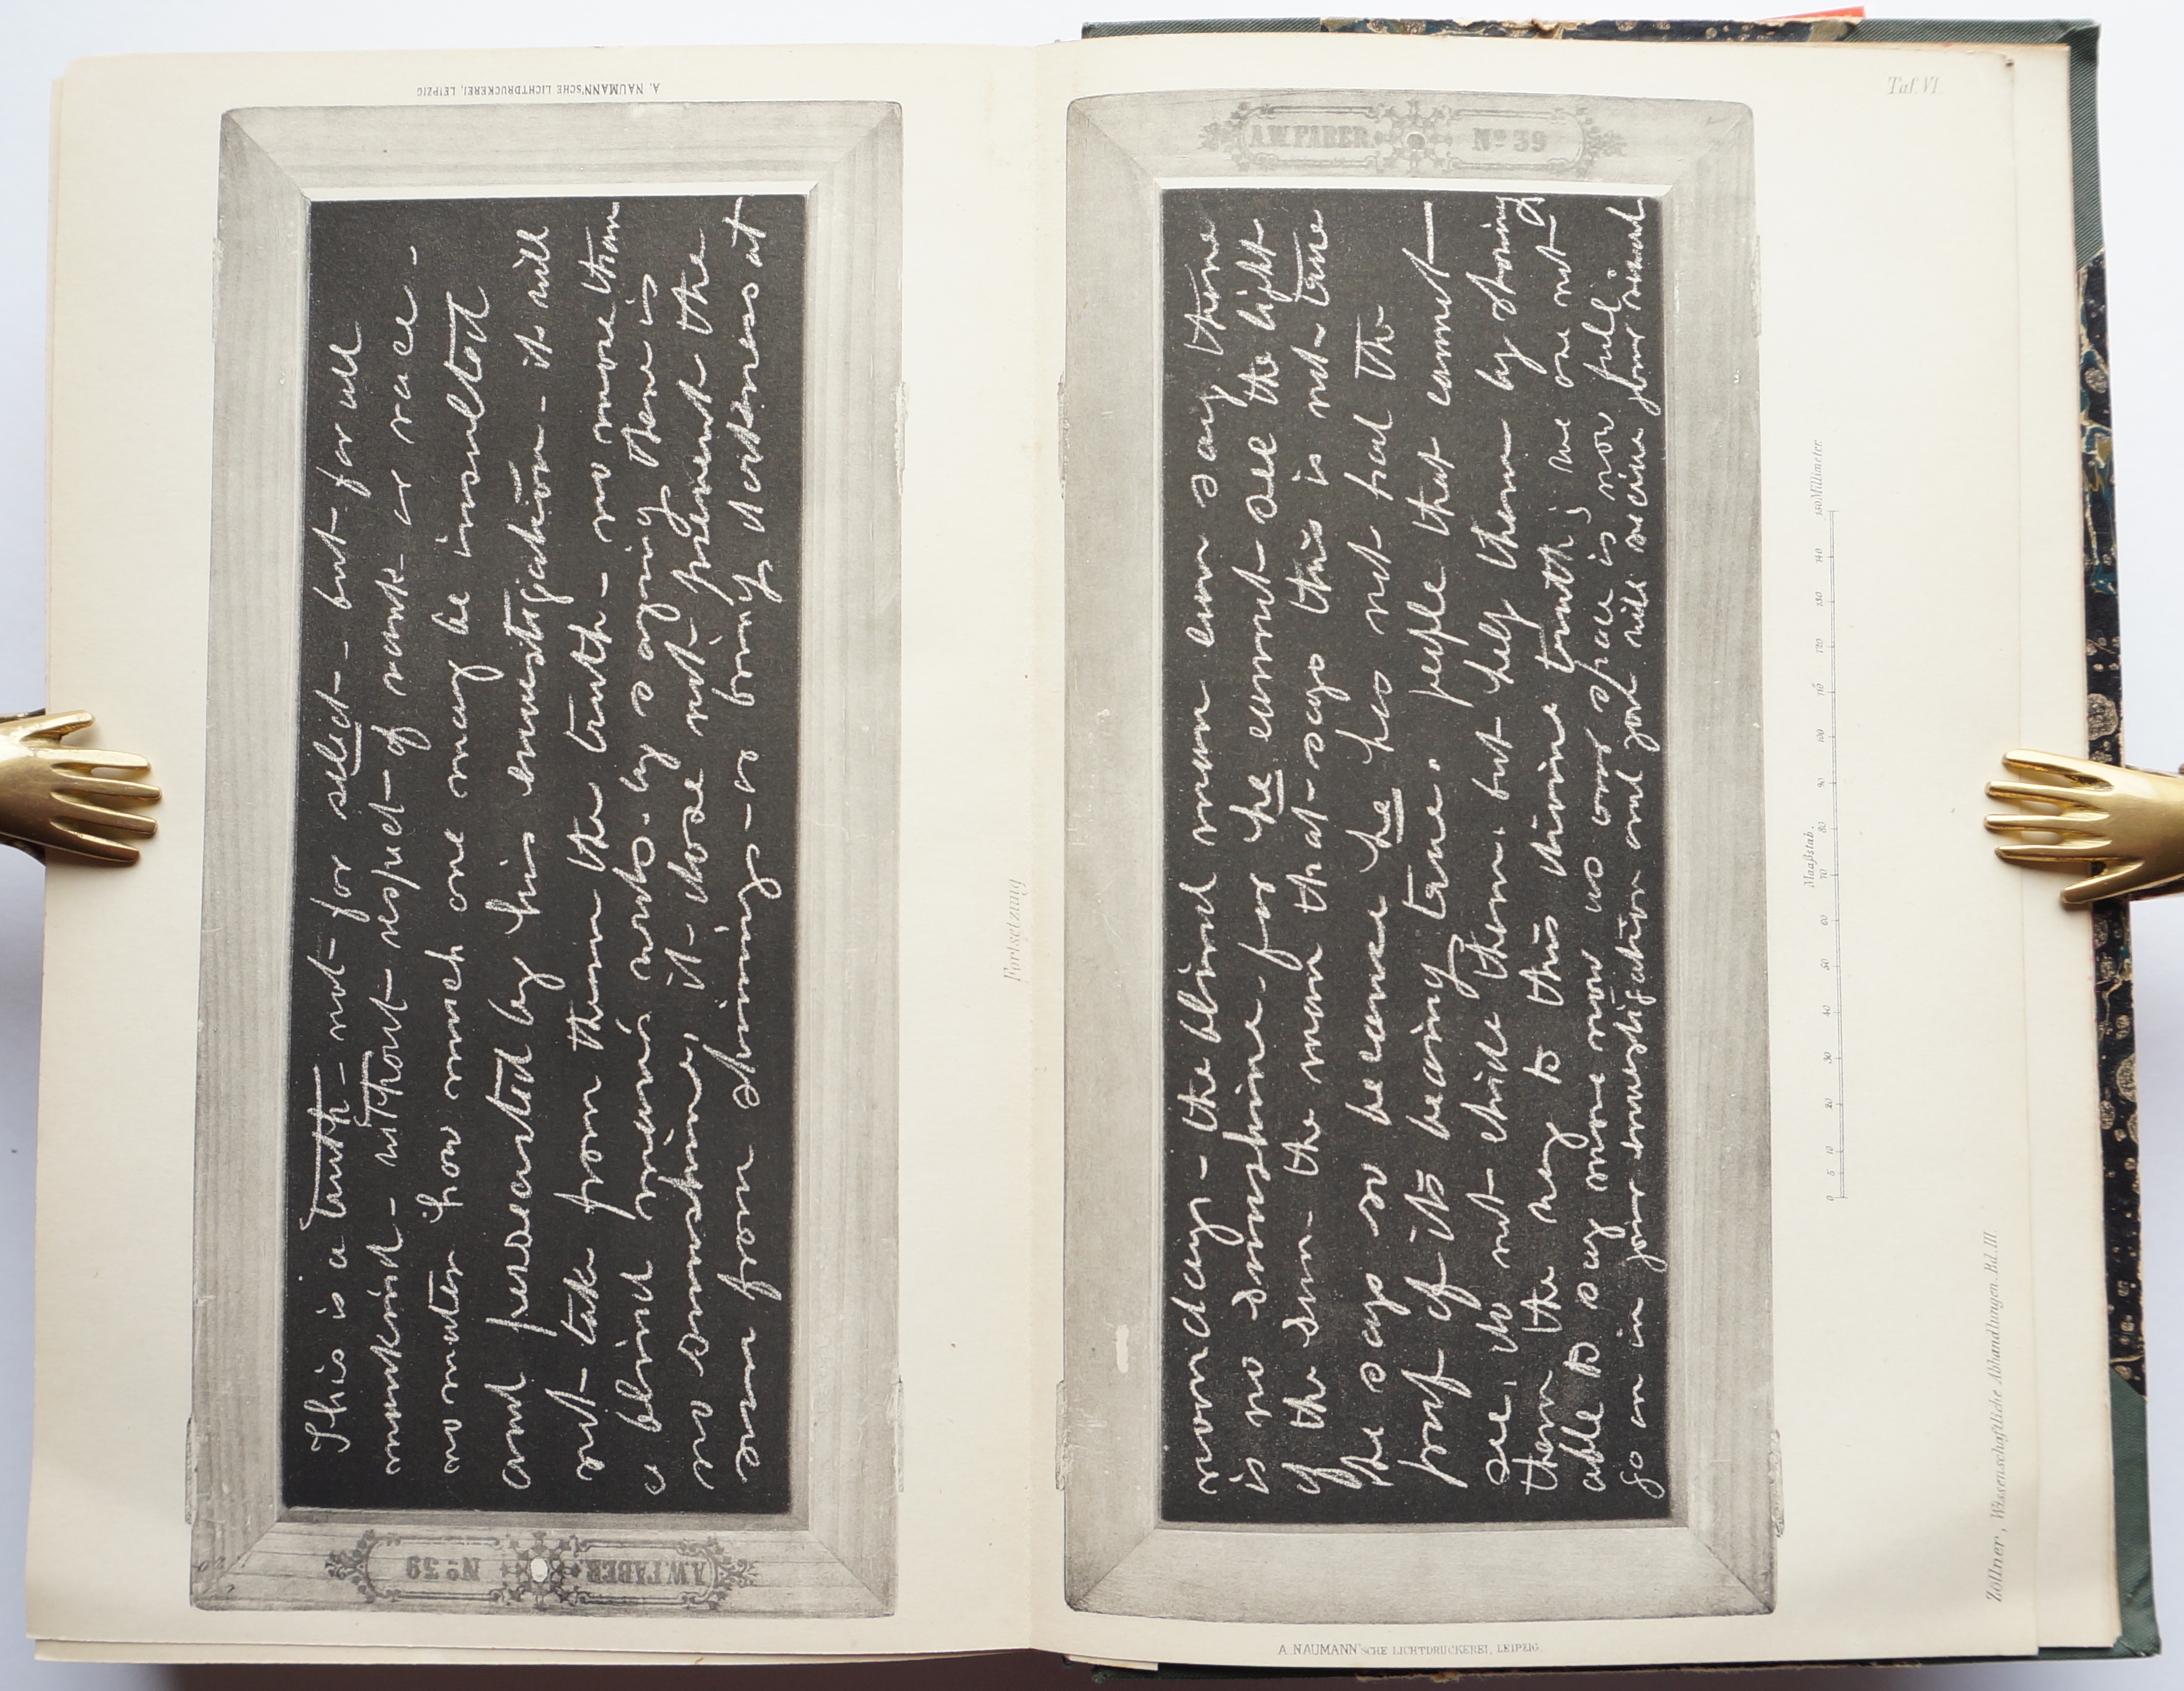 A. NAUMANN'SCHE LICHTDRUCKEREI, LEIPZIG
This is a truth - not - for select - but for all
mankind - without respect - of rank or race -
no mater how much one may be insulted
and persecuted by his investigation - it will
not - take from them the truth - no more than
a blind man's words - by saying there is
no sunnshine, it dose not prevent the
sun from shining - or bring darkness at
A.W. FABER. No 39
Fortsetzung
Taf. VI.
A.W. FABER. No 39
noonday - the blind man can say there
is no sunnshine - for he cannot see the light
of the sun - the man that - says this is not true
he says so because he has not had the
proof of its beaing true. people that cannot
see, do not chide them, but help them by shoing
them the way to this divine truth; we are not
able to say more now as our space is now full
go on in your investigation and you will recive your reward
Maaßstab.
0 5 10 20 30 40 50 60 70 80 90 100 110 120 130 140 150 Millimeter.
Zöllner, Wissenschaftliche Abhandlungen. Bd. III.
A. NAUMANN'SCHE LICHTDRUCKEREI, LEIPZIG.